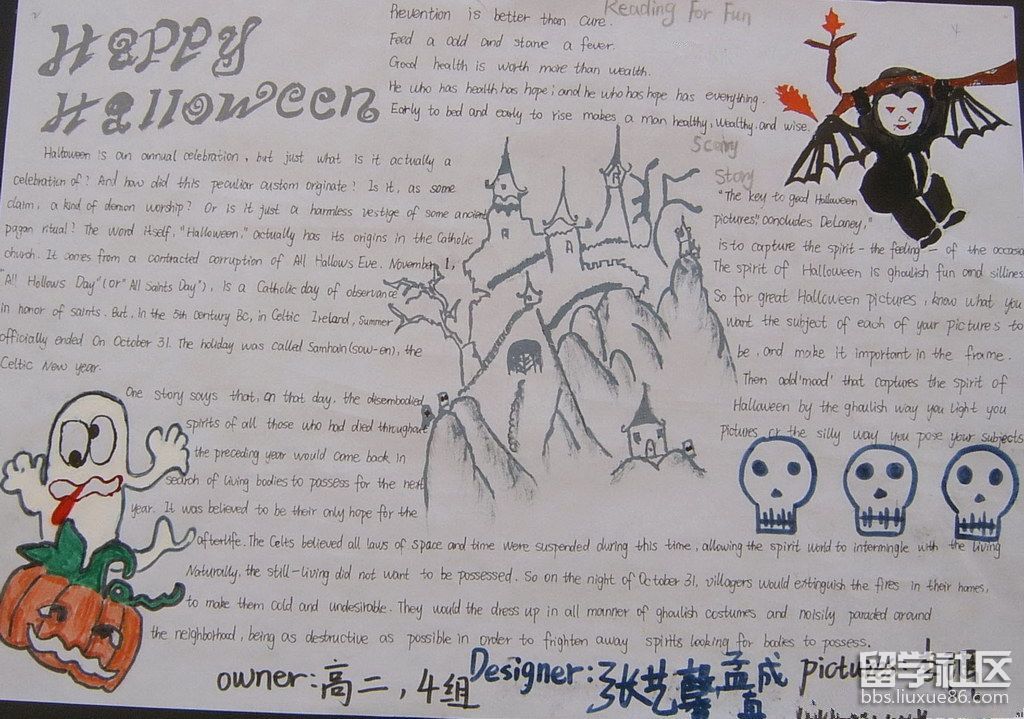 Happy
Halloween
Reading For Fun
Prevention is better than cure.
Feed a cold and starve a fever.
Good health is worth more than wealth.
He who has health has hope; and he who has hope has everything.
Early to bed and early to rise makes a man healthy, wealthy, and wise.
Halloween is an annual celebration, but just what is it actually a
celebration of? And how did this peculiar custom originate? Is it, as some
claim, a kind of demon worship? Or is it just a harmless vestige of some ancient
pagan ritual? The word itself, "Halloween," actually has its origins in the Catholic
church. It comes from a contracted corruption of All Hallows Eve. November 1,
"All Hollows Day" (or "All Saints Day"), is a Catholic day of observance
in honor of saints. But, in the 5th century BC, in Celtic Ireland, summer
officially ended On October 31. The holiday was called Samhain (sow-en), the
Celtic New year.
One story says that, on that day, the disembodied
spirits of all those who had died throughout
the preceding year would come back in
search of living bodies to possess for the next
year. It was believed to be their only hope for the
afterlife. The Celts believed all laws of space and time were suspended during this time, allowing the spirit world to intermingle with the living
Naturally, the still-living did not want to be possessed. So on the night of October 31, villagers would extinguish the fires in their homes,
to make them cold and undesirable. They would the dress up in all manner of ghoulish costumes and noisily paraded around
the neighborhood, being as destructive as possible in order to frighten away spirits looking for bodies to possess.
Scary
Story
"The key to good Halloween
pictures," concludes DeLaney,"
is to capture the spirit - the feeling - of the occasion
The spirit of Halloween is ghoulish fun and silliness
So for great Halloween pictures, know what you
want the subject of each of your pictures to
be, and make it important in the frame.
Then add 'mood' that captures the spirit of
Halloween by the ghoulish way you light you
pictures or the silly way you pose your subjects
owner: 高二, 4组
Designer: 张艺馨 孟成真
picture:
留学社区
bbs.liuxue86.com